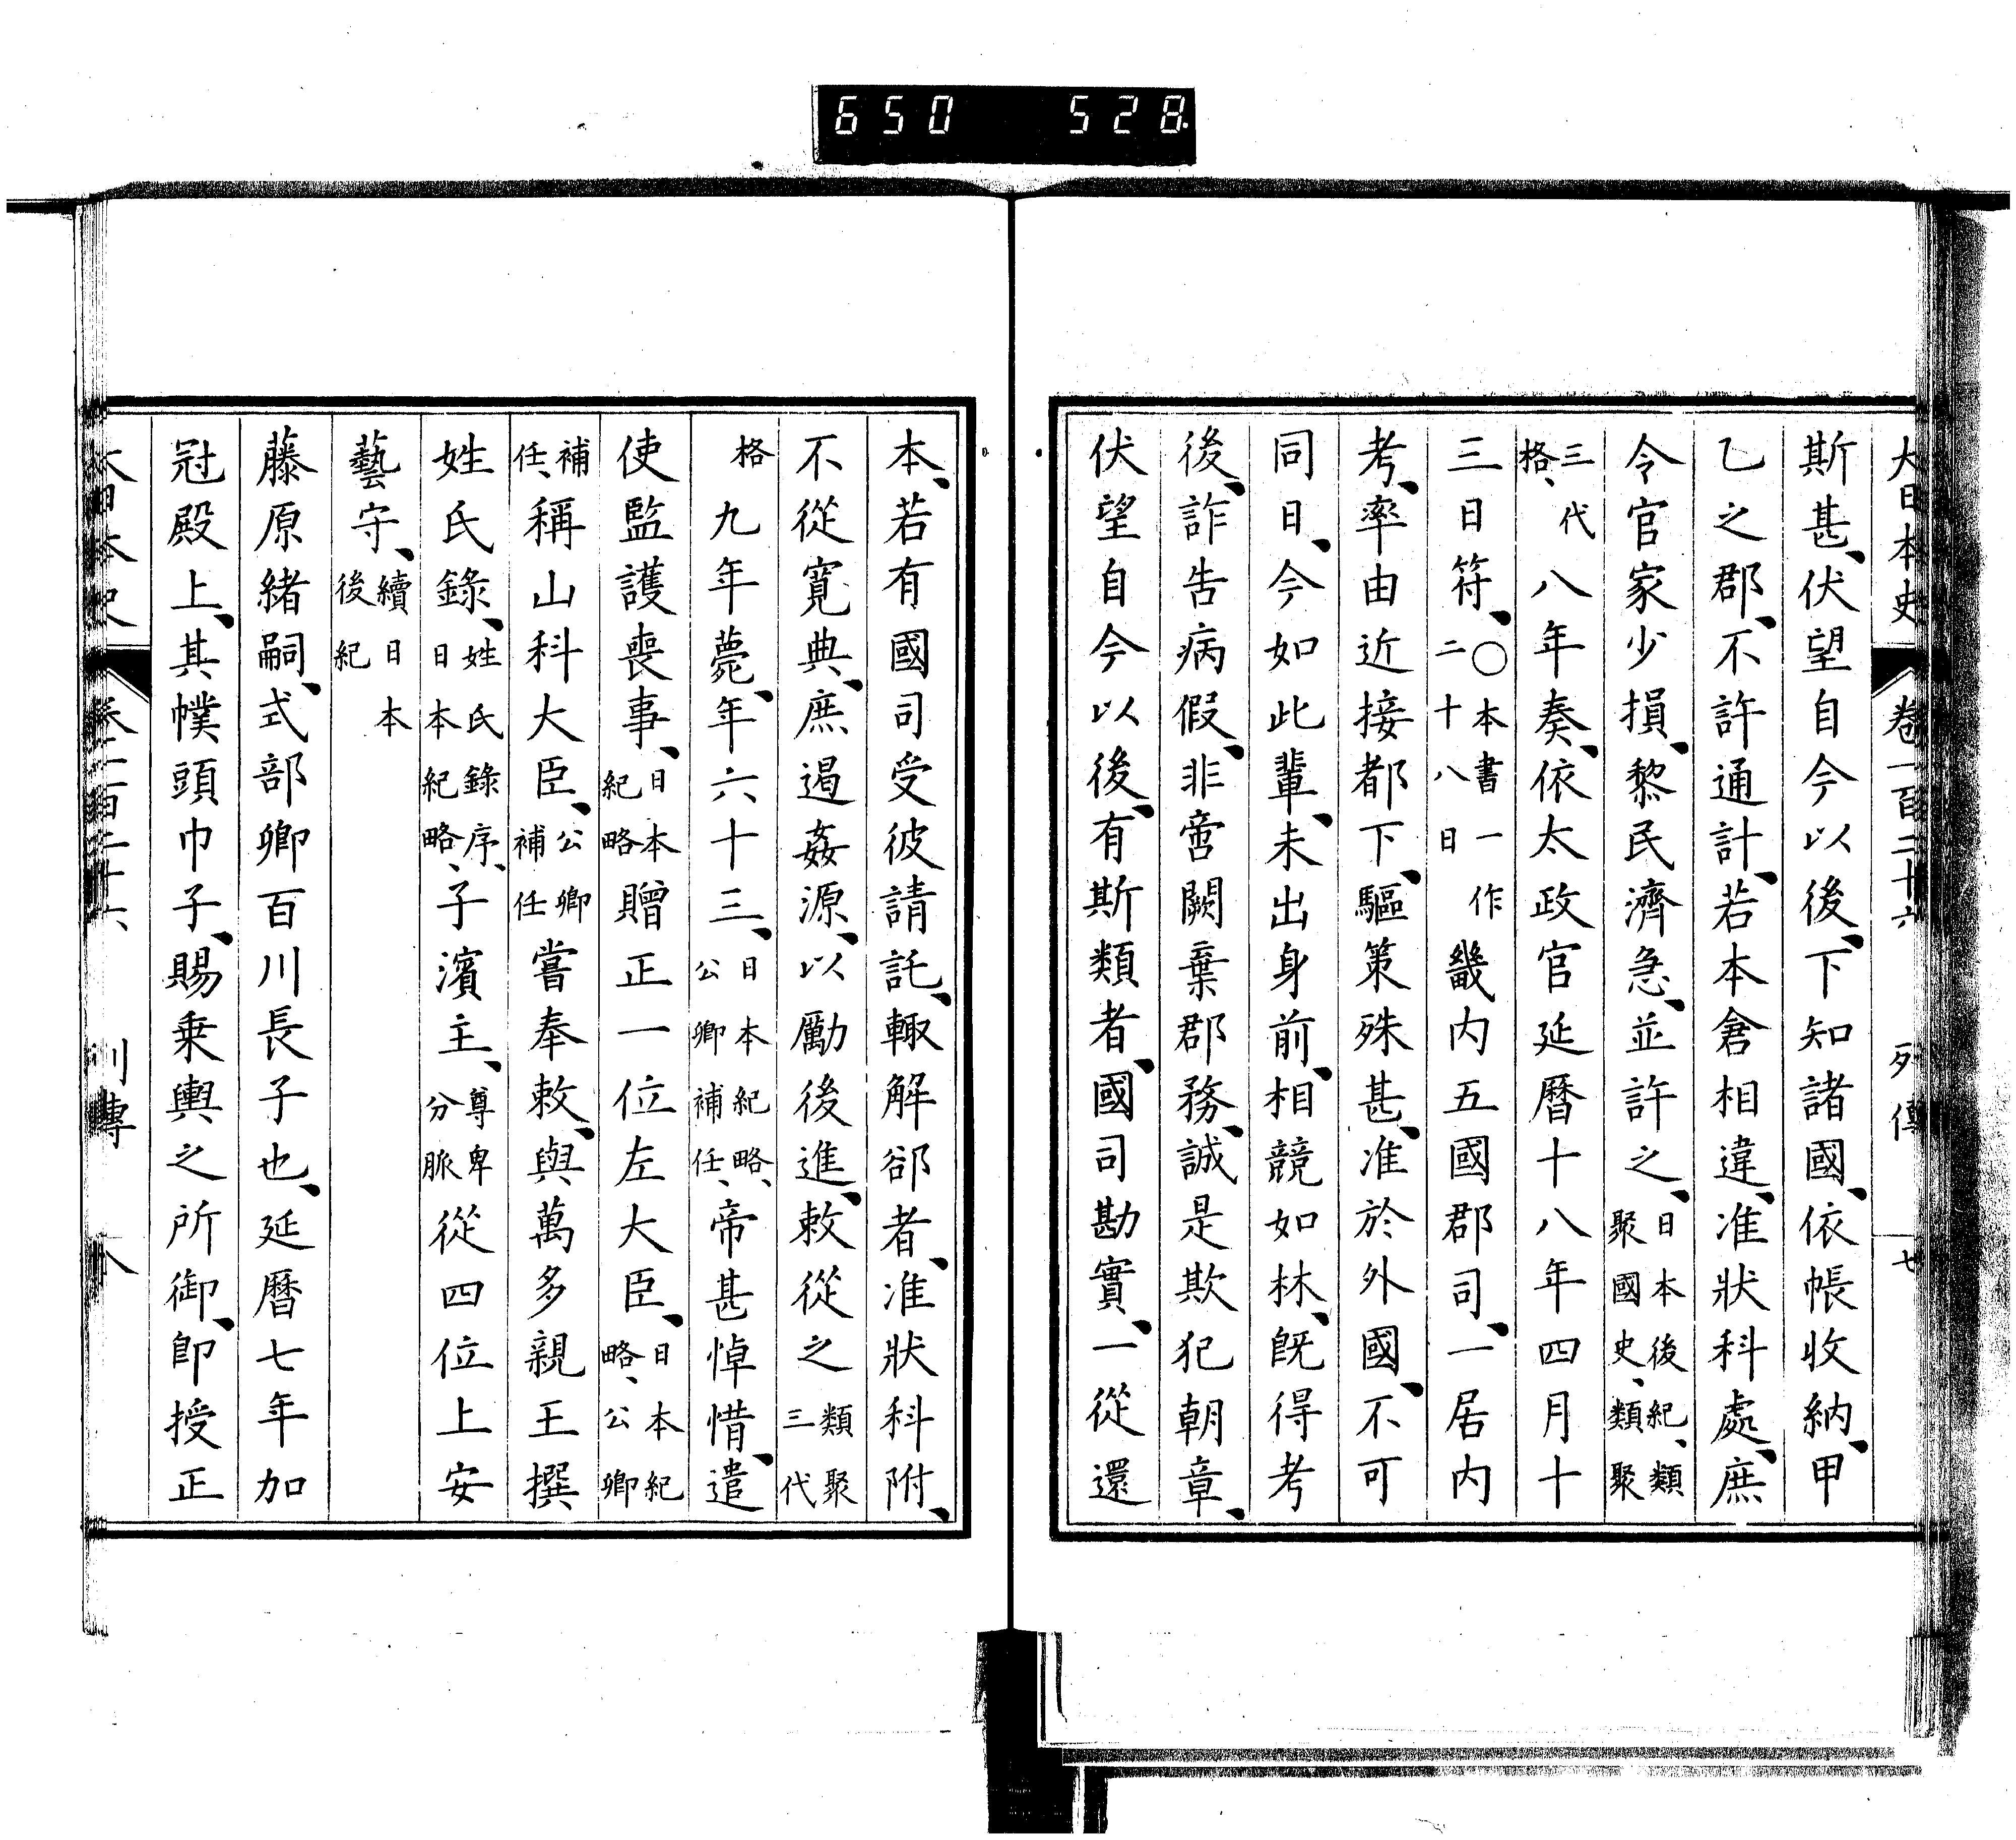 650 528
大日本史 卷一百二十六 列傳 七
斯甚、伏望自今以後、下知諸國、依帳收納、甲
乙之郡、不許通計、若本倉相違、准狀科處、庶
令官家少損、黎民濟急、並許之、日本後紀、類聚國史、類聚
三代格、八年奏、依太政官延曆十八年四月十
三日符、〇本書一作二十八日畿内五國郡司、一居内
考、率由近接都下、驅策殊甚、准於外國、不可
同日、今如此輩、未出身前、相競如林、既得考
後、詐告病假、非啻闕棄郡務、誠是欺犯朝章、
伏望自今以後、有斯類者、國司勘實、一從還
本、若有國司受彼請託、輙解郤者、准狀科附、
不從寬典、庶遏姦源、以勵後進、敕從之類聚三代
格九年薨、年六十三、日本紀略、公卿補任、帝甚悼惜、遣
使監護喪事、日本紀略贈正一位左大臣、日本紀略、公卿
補任、稱山科大臣、公卿補任嘗奉敕、與萬多親王撰
姓氏錄、姓氏錄序、日本紀略、子濱主、尊卑分脈從四位上安
藝守、續日本後紀
藤原緒嗣、式部卿百川長子也、延曆七年加
冠殿上、其幞頭巾子、賜乗輿之所御、卽授正
大日本史 卷一百二十六 列傳 八